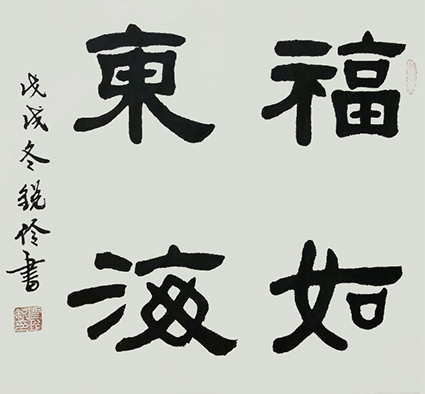 福如
東海
戊戌冬銳怜書